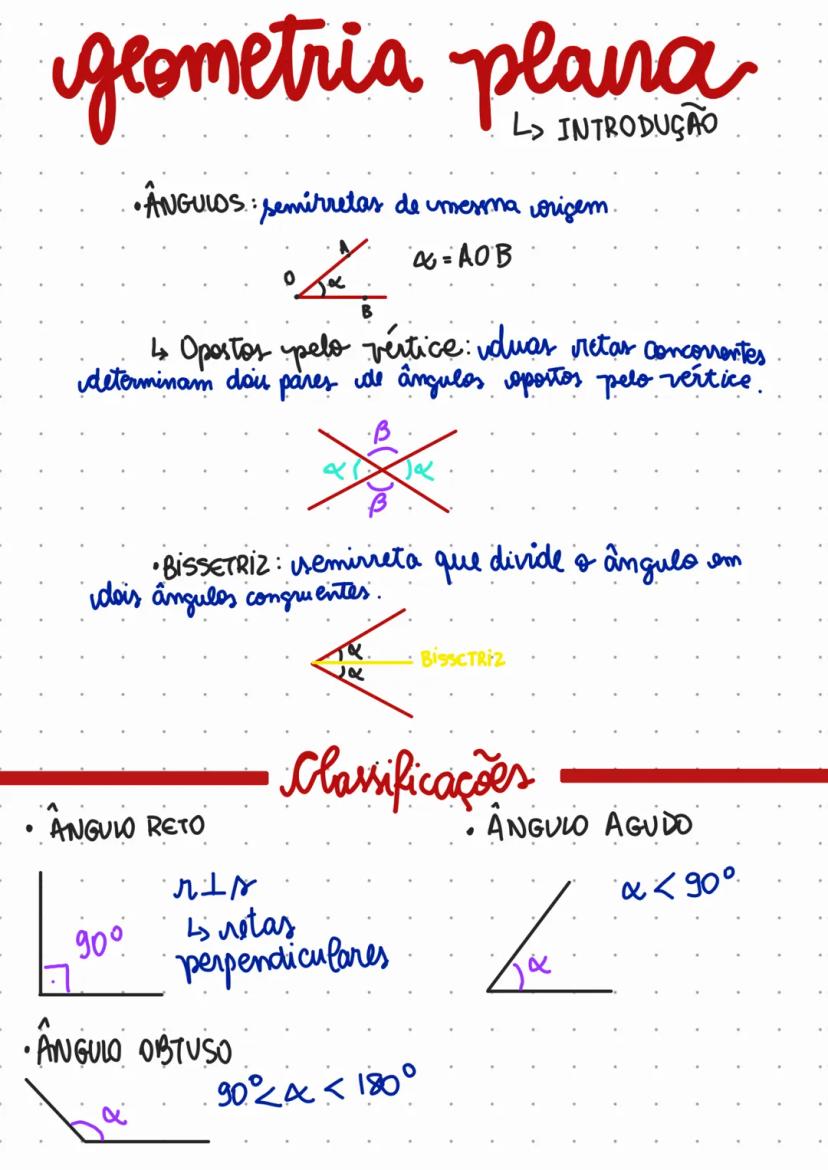 geometria plana
↳ INTRODUÇÃO
• ÂNGULOS: semirretas de mesma origem
A
O α α = AOB
B
↳ Opostos pelo vértice: duas retas concorrentes
determinam dois pares de ângulos opostos pelo vértice.
β
α α
β
• BISSETRIZ: semirreta que divide o ângulo em
dois ângulos congruentes.
α
BISSETRIZ
α
Classificações
• ÂNGULO RETO
r⊥s
90°
↳ retas
perpendiculares
• ÂNGULO AGUDO
α < 90°
α
• ÂNGULO OBTUSO
90° < α < 180°
α